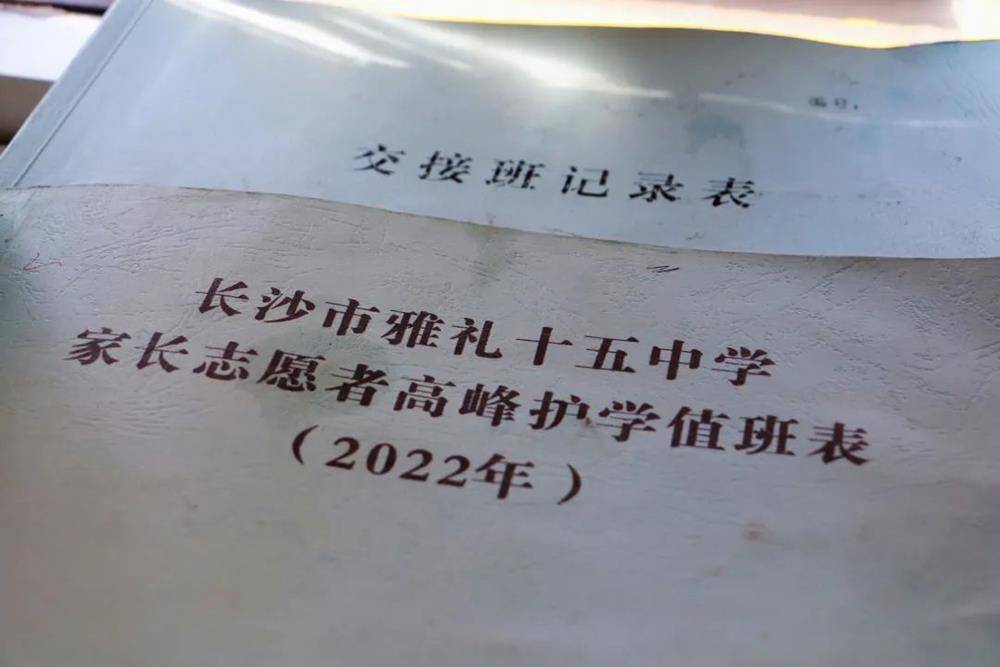 编号:
交接班记录表
长沙市雅礼十五中学
家长志愿者高峰护学值班表
（2022年）